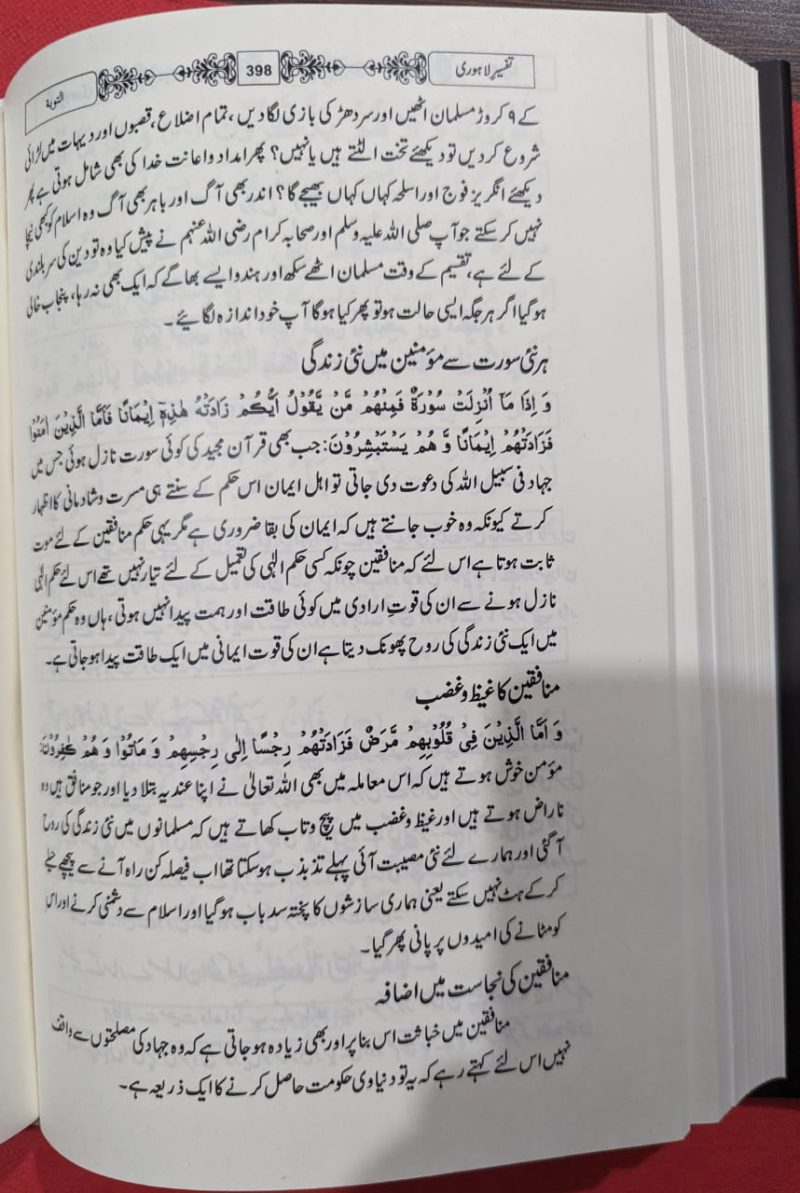 تفسیر لاہوری
398
التوبة
کے ۹ کروڑ مسلمان اٹھیں اور سر دھڑ کی بازی لگا دیں، تمام اضلاع، قصبوں اور دیہات میں لڑائی
شروع کر دیں تو دیکھئے تخت الٹتے ہیں یا نہیں؟ پھر امداد و اعانت خدا کی بھی شامل ہوتی ہے پھر
دیکھئے انگریز فوج اور اسلحہ کہاں کہاں بھیجے گا؟ اندر بھی آگ اور باہر بھی آگ وہ اسلام کو کبھی نیچا
نہیں کر سکتے جو آپ صلی اللہ علیہ وسلم اور صحابہ کرام رضی اللہ عنہم نے پیش کیا وہ تو دین کی سربلندی
کے لئے ہے، تقسیم کے وقت مسلمان اٹھے سکھ اور ہندو ایسے بھاگے کہ ایک بھی نہ رہا، پنجاب خالی
ہو گیا اگر ہر جگہ ایسی حالت ہو تو پھر کیا ہوگا آپ خود اندازہ لگائیے۔
ہر نئی سورت سے مؤمنین میں نئی زندگی
وَ اِذَا مَآ اُنْزِلَتْ سُوْرَةٌ فَمِنْهُمْ مَّنْ يَّقُوْلُ اَيُّكُمْ زَادَتْهُ هٰذِهٖٓ اِيْمَانًا فَاَمَّا الَّذِيْنَ اٰمَنُوْا
فَزَادَتْهُمْ اِيْمَانًا وَّ هُمْ يَسْتَبْشِرُوْنَ: جب بھی قرآن مجید کی کوئی سورت نازل ہوئی جس میں
جہاد فی سبیل اللہ کی دعوت دی جاتی تو اہل ایمان اس حکم کے سنتے ہی مسرت و شادمانی کا اظہار
کرتے کیونکہ وہ خوب جانتے ہیں کہ ایمان کی بقا ضروری ہے مگر یہی حکم منافقین کے لئے موت
ثابت ہوتا ہے اس لئے کہ منافقین چونکہ کسی حکم الٰہی کی تعمیل کے لئے تیار نہیں تھے اس لئے حکم الٰہی
نازل ہونے سے ان کی قوتِ ارادی میں کوئی طاقت اور ہمت پیدا نہیں ہوتی، ہاں وہ حکم مؤمنین
میں ایک نئی زندگی کی روح پھونک دیتا ہے ان کی قوت ایمانی میں ایک طاقت پیدا ہو جاتی ہے۔
منافقین کا غیظ و غضب
وَ اَمَّا الَّذِيْنَ فِيْ قُلُوْبِهِمْ مَّرَضٌ فَزَادَتْهُمْ رِجْسًا اِلٰى رِجْسِهِمْ وَ مَاتُوْا وَ هُمْ كٰفِرُوْنَ:
مؤمن خوش ہوتے ہیں کہ اس معاملہ میں بھی اللہ تعالیٰ نے اپنا عندیہ بتلا دیا اور جو منافق ہیں وہ
ناراض ہوتے ہیں اور غیظ و غضب میں پیچ و تاب کھاتے ہیں کہ مسلمانوں میں نئی زندگی کی روح
آ گئی اور ہمارے لئے نئی مصیبت آئی پہلے تذبذب ہو سکتا تھا اب فیصلہ کن راہ آنے سے پیچھے حیلے
کر کے ہٹ نہیں سکتے یعنی ہماری سازشوں کا پختہ سدباب ہو گیا اور اسلام سے دشمنی کرنے اور اس
کو مٹانے کی امیدوں پر پانی پھر گیا۔
منافقین کی نجاست میں اضافہ
منافقین میں خباثت اس بنا پر اور بھی زیادہ ہو جاتی ہے کہ وہ جہاد کی مصلحتوں سے واقف
نہیں اس لئے کہتے رہے کہ یہ تو دنیاوی حکومت حاصل کرنے کا ایک ذریعہ ہے۔